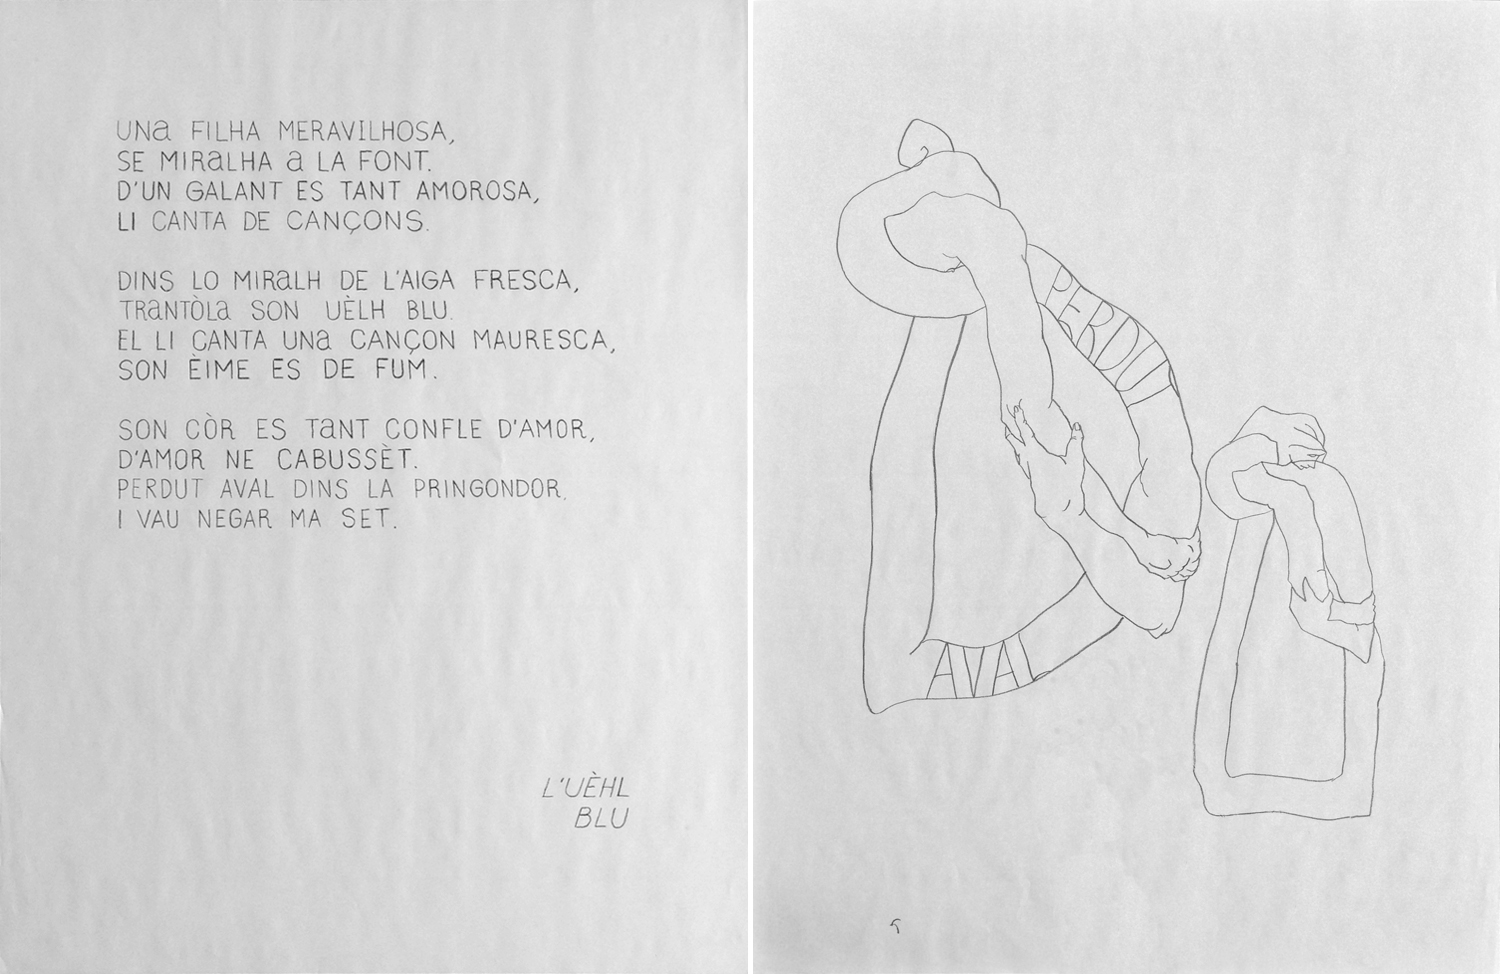 UNA FILHA MERAVILHOSA,
SE MIRALHA A LA FONT.
D'UN GALANT ES TANT AMOROSA,
LI CANTA DE CANÇONS.
DINS LO MIRALH DE L'AIGA FRESCA,
TRANTÒLA SON UÈLH BLU.
EL LI CANTA UNA CANÇON MAURESCA,
SON ÈIME ES DE FUM.
SON CÒR ES TANT CONFLE D'AMOR,
D'AMOR NE CABUSSÈT.
PERDUT AVAL DINS LA PRINGONDOR,
I VAU NEGAR MA SET.
L'UÈHL
BLU
PERDUT
AVAL